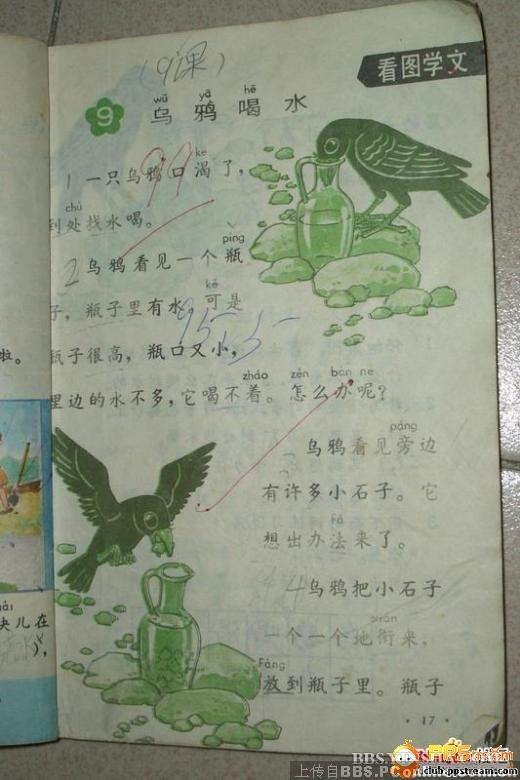 (9课)
看图学文
wū yā hē
9 乌鸦喝水
kě
1 一只乌鸦口渴了，
chù
到处找水喝。
99
píng
2 乌鸦看见一个瓶
kě
子，瓶子里有水。可是
95
瓶子很高，瓶口又小，
zháo zěn bàn ne
里边的水不多，它喝不着。怎么办呢？
páng
乌鸦看见旁边
有许多小石子。它
fǎ
想出办法来了。
4 乌鸦把小石子
xián
一个一个地衔来，
Fàng
放到瓶子里。瓶子
· 17 ·
啦。
块儿在
上传自BBS.P
club.ppstream.com